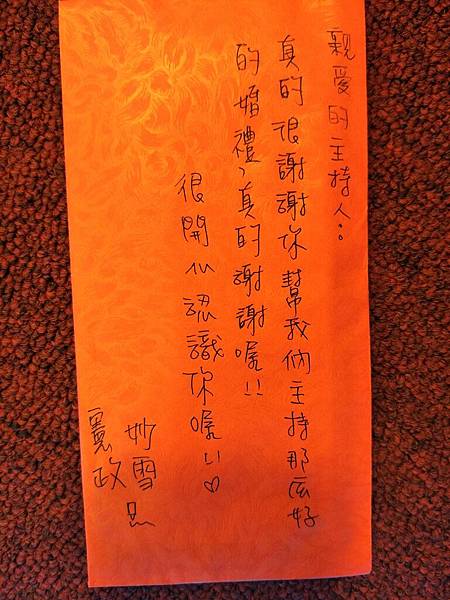 親愛的主持人:
真的很謝謝你幫我們主持那麼好
的婚禮,真的謝謝喔!!
很開心認識你喔!!♡
妙雪
憲政